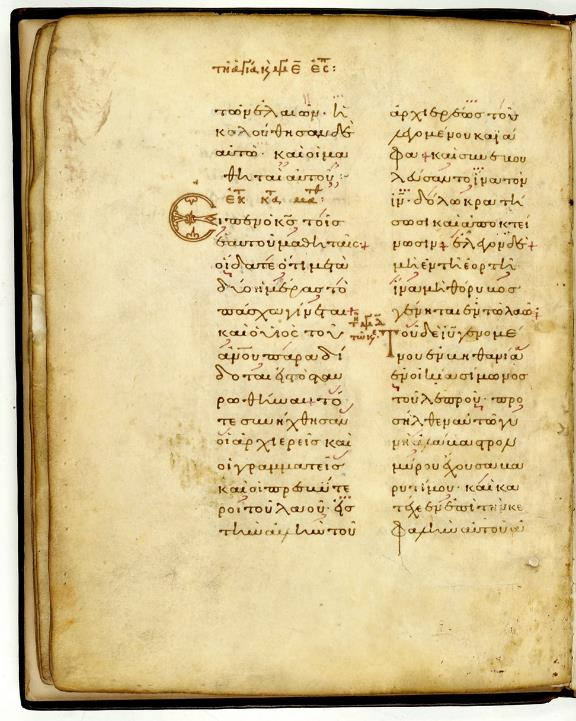 τῶν ἐλαιῶν· ἠ
κολούθησαν δὲ
αὐτῶ· καὶ οἱ μα
θηταὶ αὐτοῦ·
Εἶπεν ὁ κς τοῖς
ἑαυτοῦ μαθηταῖς+
οἴδατε ὅτι μετὰ
δύο ἡμέρας τὸ
πάσχα γίνεται+
καὶ ὁ υἱὸς τοῦ
ἀνου παραδί
δοται εἰς τὸ σταυ
ρωθῆναι+ τό
τε συνήχθησαν
οἱ ἀρχιερεῖς καὶ
οἱ γραμματεῖς
καὶ οἱ πρεσβύτε
ροι τοῦ λαοῦ· εἰς
τὴν αὐλὴν τοῦ
ἀρχιερέως τοῦ
λεγομένου καϊά
φα+ καὶ συνεβου
λεύσαντο ἵνα τὸν
ιν δόλω κρατή
σωσι καὶ ἀποκτεί
νωσιν+ ἔλεγον δὲ+
μὴ ἐν τῆ ἑορτῆ
ἵνα μὴ θόρυβος
γένηται ἐν τῶ λαῶ+
Τοῦ δὲ ιυ γενομέ
νου ἐν βηθανία
ἐν οἰκία σίμωνος
τοῦ λεπροῦ· προ
σῆλθεν αὐτῶ γυ
νὴ ἀλάβαστρον
μύρου ἔχουσα βα
ρυτίμου· καὶ κα
τέχεεν ἐπὶ τὴν κε
φαλὴν αὐτοῦ ἀ